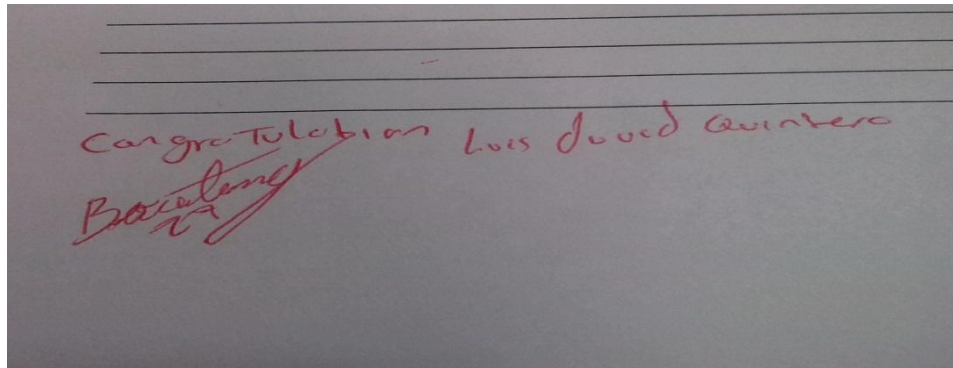 Congratulation Luis david Quintero